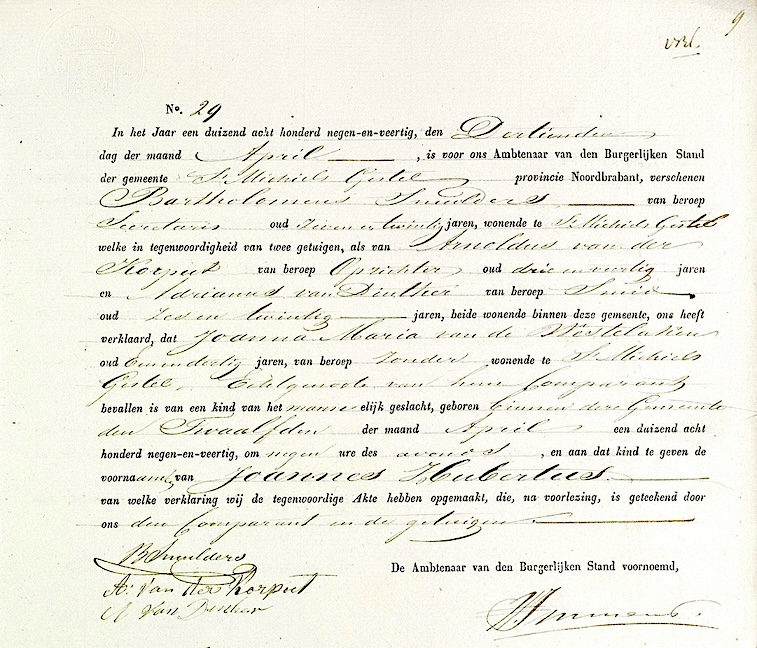 9
No. 29
In het Jaar een duizend acht honderd negen-en-veertig, den Dertienden
dag der maand April, is voor ons Ambtenaar van den Burgerlijken Stand
der gemeente St Michiels Gestel provincie Noordbrabant, verschenen
Bartholomeus Smulders van beroep
Secretaris oud zeven en twintig jaren, wonende te St Michiels Gestel
welke in tegenwoordigheid van twee getuigen, als van Arnoldus van der
Korput van beroep Oprichter oud drie en veertig jaren
en Adrianus van Dinther van beroep Smid
oud zes en twintig jaren, beide wonende binnen deze gemeente, ons heeft
verklaard, dat Joanna Maria van de Westelaken
oud Een en dertig jaren, van beroep zonder wonende te St Michiels
Gestel, Echtgenoote van hem Comparant
bevallen is van een kind van het mannelijk geslacht, geboren binnen deze Gemeente
den Twaalfden der maand April een duizend acht
honderd negen-en-veertig, om negen ure des avonds, en aan dat kind te geven de
voornaam van Joannes Hubertus.
van welke verklaring wij de tegenwoordige Akte hebben opgemaakt, die, na voorlezing, is geteekend door
ons den Comparant en de getuigen
B Smulders
A: van der Korput
A van Dinther
De Ambtenaar van den Burgerlijken Stand voornoemd,